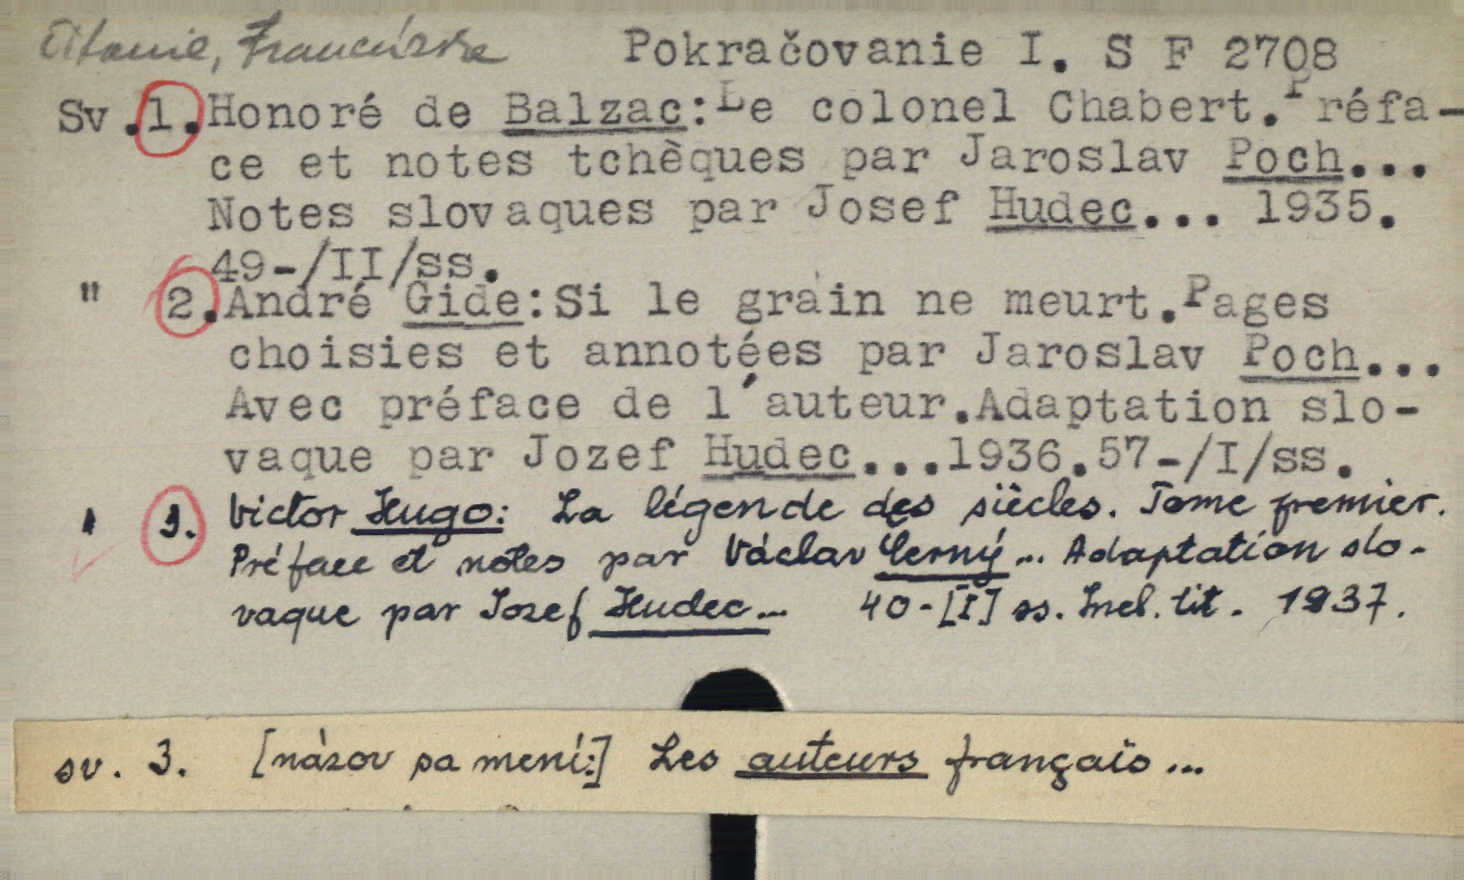 Čítanie, Francúzske Pokračovanie I. S F 2708
Sv.1.Honoré de Balzac:Le colonel Chabert.Préfa-
ce et notes tchèques par Jaroslav Poch...
Notes slovaques par Josef Hudec... 1935.
49-/II/ss.
" 2.André Gide:Si le grain ne meurt.Pages
choisies et annotées par Jaroslav Poch...
Avec préface de l'auteur.Adaptation slo-
vaque par Jozef Hudec...1936.57-/I/ss.
" 3. Victor Hugo: La légende des siècles. Tome premier.
Préface et notes par Václav Černý... Adaptation slo-
vaque par Jozef Hudec... 40-[I] ss. Incl. tit. 1937.
sv. 3. [názov sa mení:] Les auteurs français...